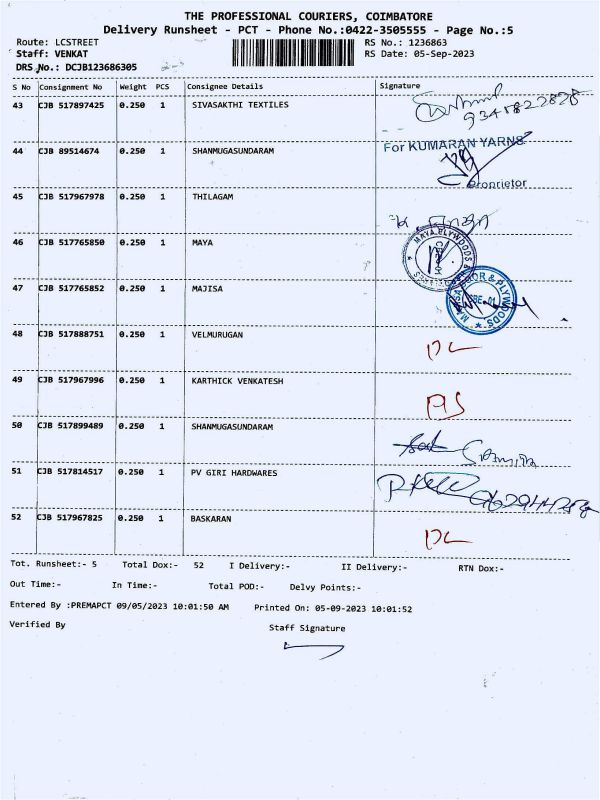 THE PROFESSIONAL COURIERS, COIMBATORE
Delivery Runsheet - PCT - Phone No.:0422-3505555 - Page No.:5
Route: LCSTREET RS No.: 1236863
Staff: VENKAT RS Date: 05-Sep-2023
DRS No.: DCJB123686305
S No Consignment No Weight PCS Consignee Details Signature
43 CJB 517897425 0.250 1 SIVASAKTHI TEXTILES
44 CJB 89514674 0.250 1 SHANMUGASUNDARAM For KUMARAN YARNS
Proprietor
45 CJB 517967978 0.250 1 THILAGAM
46 CJB 517765850 0.250 1 MAYA MAYA PLYWOODS
47 CJB 517765852 0.250 1 MAJISA MAJISA DOOR & PLYWOODS
48 CJB 517888751 0.250 1 VELMURUGAN DL
49 CJB 517967996 0.250 1 KARTHICK VENKATESH
50 CJB 517899489 0.250 1 SHANMUGASUNDARAM
51 CJB 517814517 0.250 1 PV GIRI HARDWARES
52 CJB 517967825 0.250 1 BASKARAN DL
Tot. Runsheet:- 5 Total Dox:- 52 I Delivery:- II Delivery:- RTN Dox:-
Out Time:- In Time:- Total POD:- Delvy Points:-
Entered By :PREMAPCT 09/05/2023 10:01:50 AM Printed On: 05-09-2023 10:01:52
Verified By Staff Signature